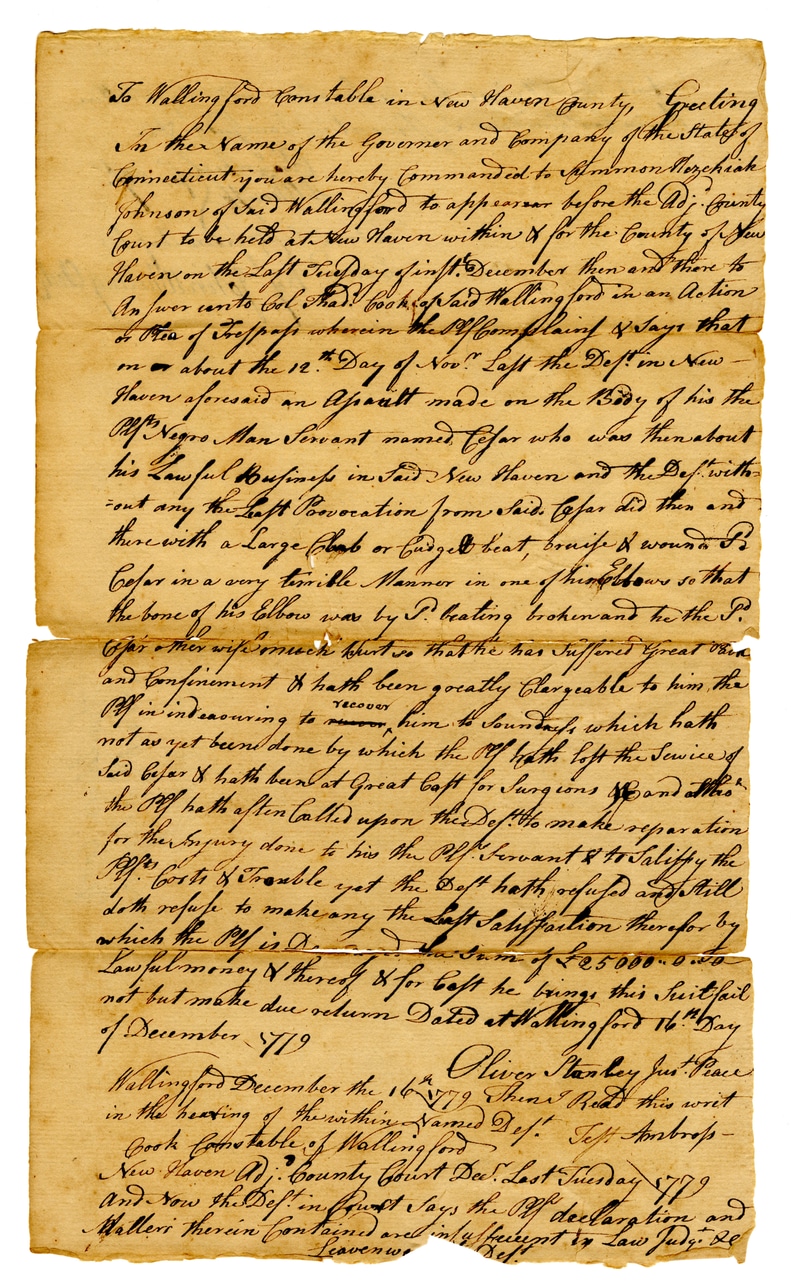 To Wallingford Constable in New Haven County, Greeting
In the Name of the Governor and Company of the State of
Connecticut you are hereby Commanded to Summon Hezekiah
Johnson of Said Wallingford to appearear before the Adj.d County
Court to be held at New Haven within & for the County of New
Haven on the Last Tuesday of inst.t December then and there to
Answer unto Col Thad.s Cook of Said Wallingford in an Action
or Plea of Trespass wherein the Plf Complains & Says that
on or about the 12.th Day of Nov.r Last the Def.t in New
Haven aforesaid an Assault made on the Body of his the
Plf.ts Negro Man Servant named Cesar who was then about
his Lawful Business in Said New Haven and the Def.t with=
=out any the Least Provocation from Said Cesar did then and
there with a Large Club or Cudgel beat, bruise & wound S.d
Cesar in a very terrible Manner in one of his Elbows so that
the bone of his Elbow was by S.d beating broken and he the S.d
Cesar other wise much hurt so that he has Suffered Great Pain
and Confinement & hath been greatly Chargeable to him the
Plf in indeavouring to recover him to Soundness which hath
not as yet been done by which the Plf hath lost the Service of
Said Cesar & hath been at Great Cost for Surgions &c and altho.
the Plf hath often Called upon the Def.t to make reparation
for the Injury done to his the Plf.s Servant & to Satisfy the
Plf.ts Costs & Trouble yet the Def.t hath refused and Still
doth refuse to make any the Least Satisfaction therefor by
which the Plf is the Sum of £25000 .. 0 .. 0
Lawful money & thereof & for Cost he brings this Suit fail
not but make due return Dated at Wallingford 16.th Day
of December 1779
Oliver Stanley Just. Peace
Wallingford December the 16.th 1779 Then I Read this writ
in the hearing of the within Named Def.t Test Ambros
Cook Constable of Wallingford
New Haven Adj.d County Court Dec.r Last Tuesday 1779
And Now the Def.t in Court Says the Plf.s declaration and
Matters therein Contained are insufficient in Law Judg.t &c
Def.t